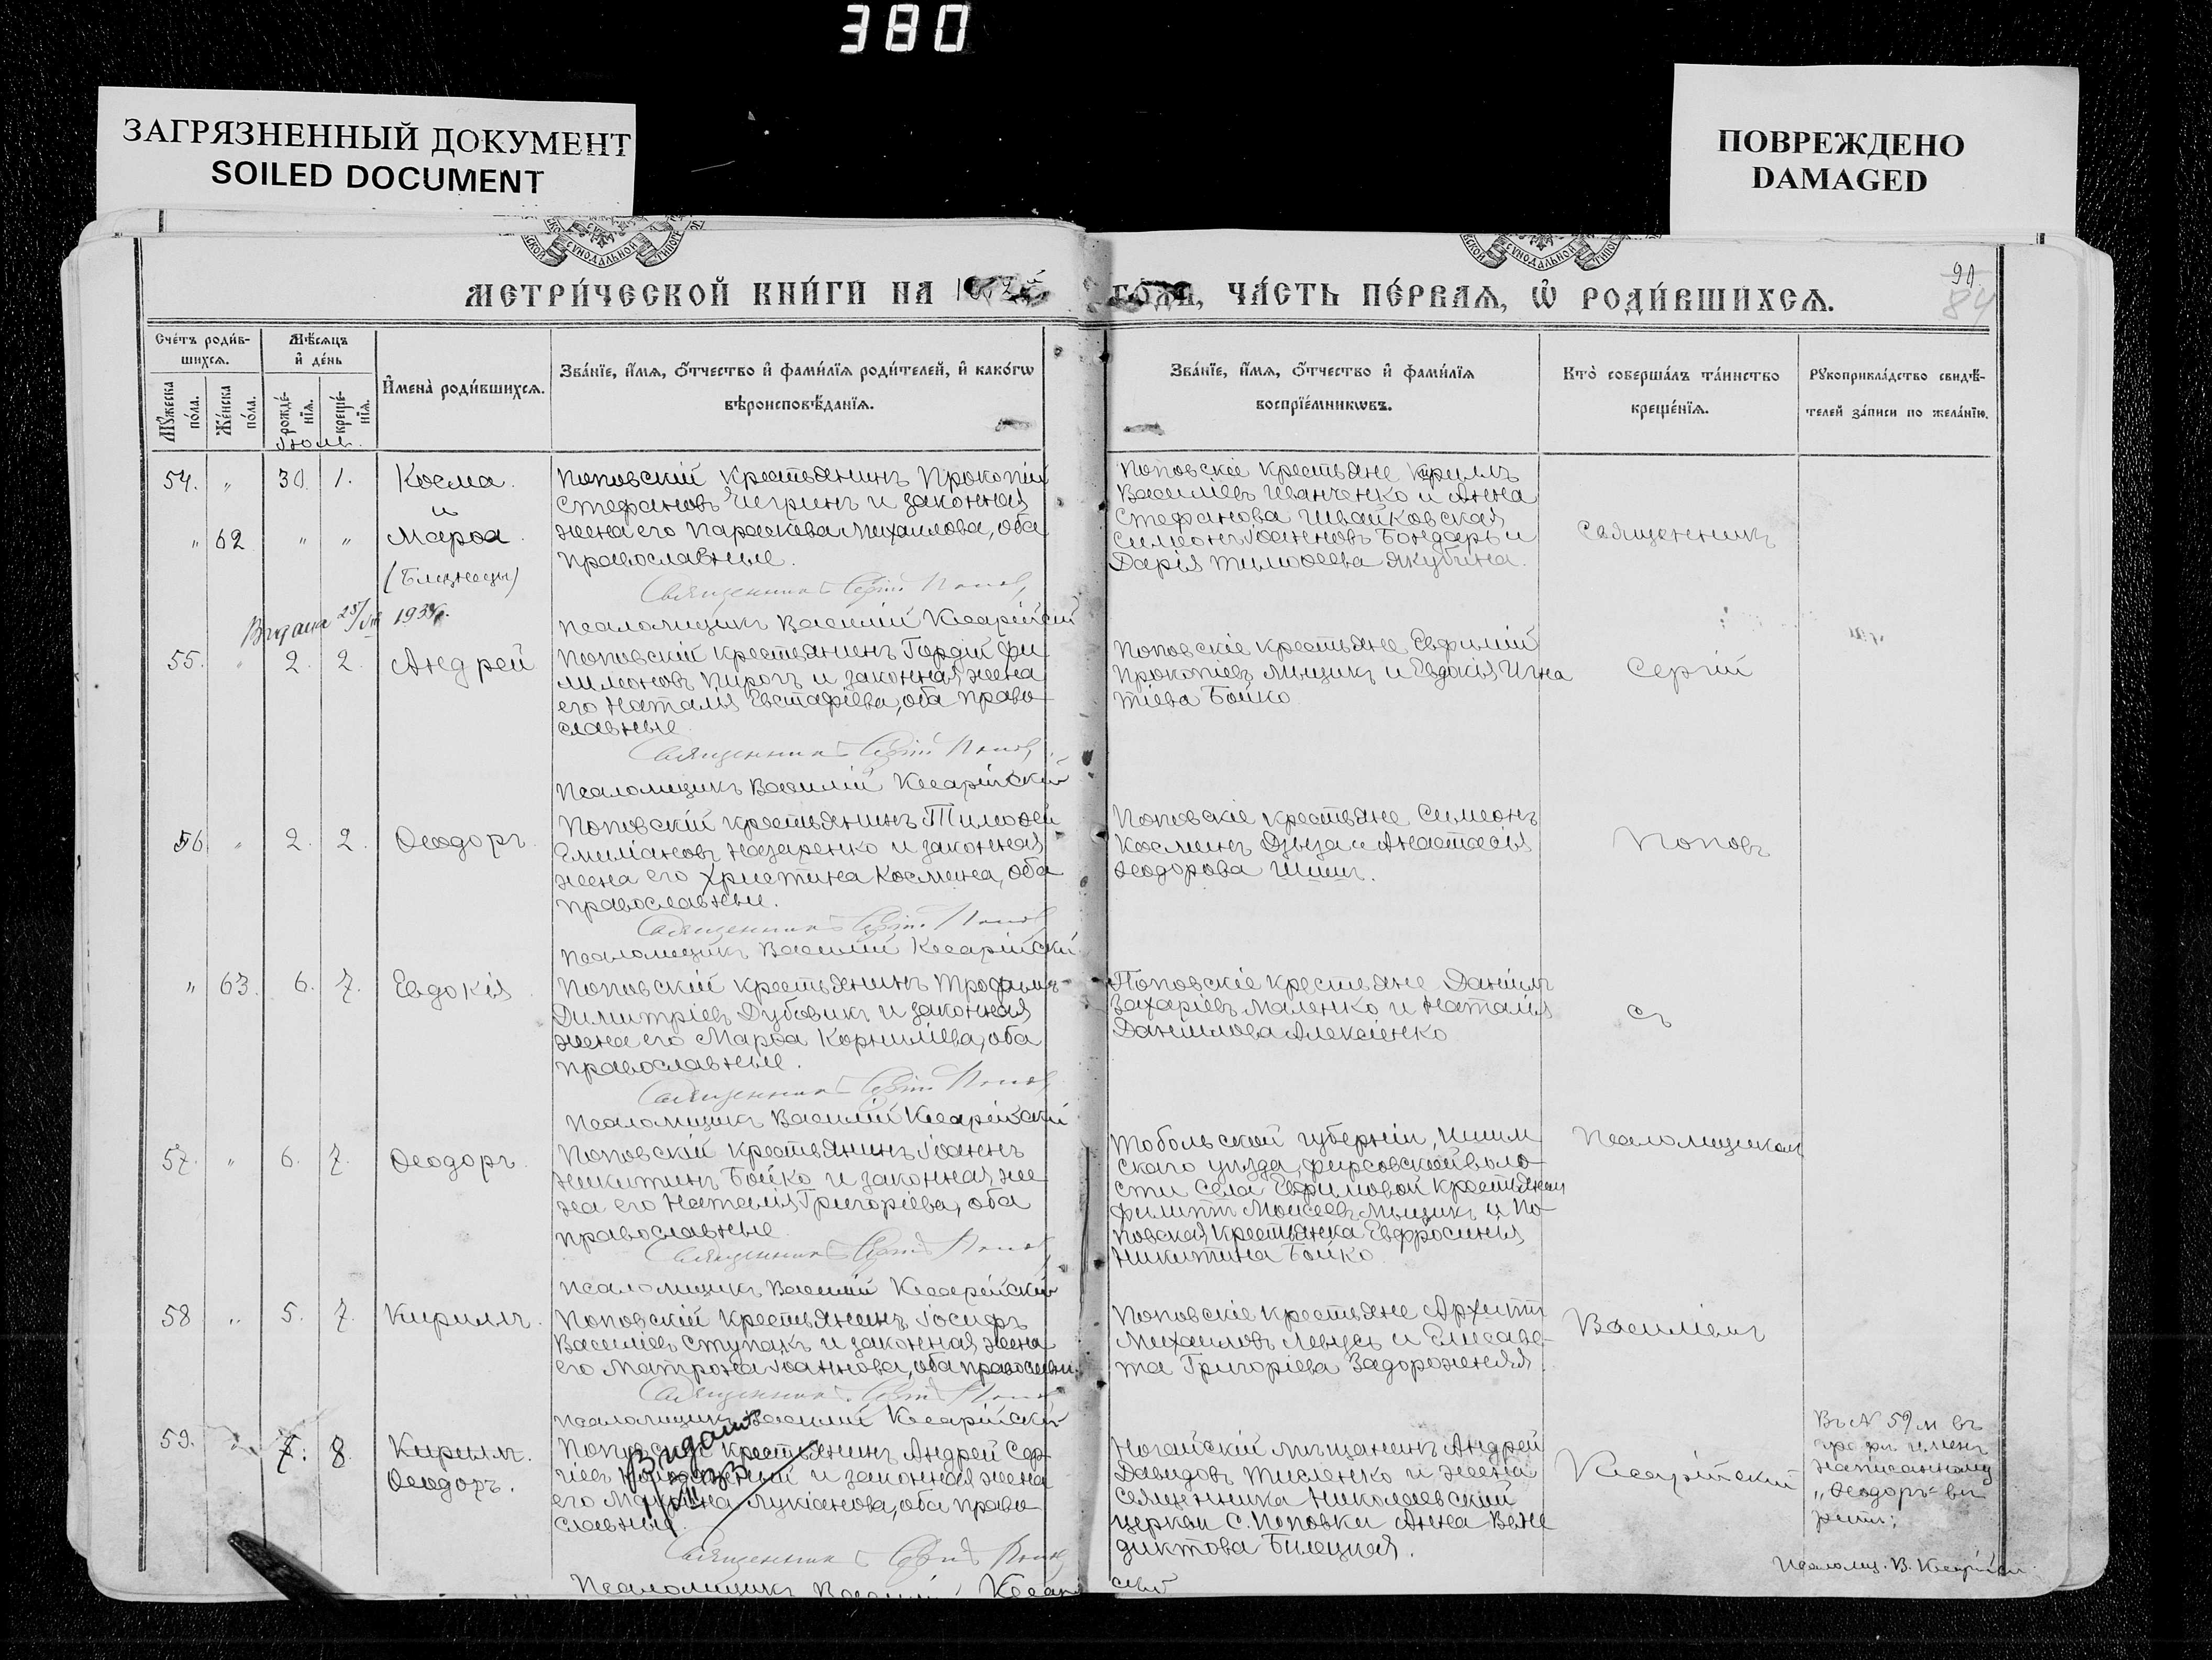 380
ЗАГРЯЗНЕННЫЙ ДОКУМЕНТ
SOILED DOCUMENT
ПОВРЕЖДЕНО
DAMAGED
СѴНОДАЛЬНОЙ
СѴНОДАЛЬНОЙ
МЕТРИ́ЧЕСКОЙ КНИ́ГИ НА
ГО́ДА, ЧА́СТЬ ПЕ́РВАЯ, Ѡ҆ РОДИ́ВШИХСЯ.
90
84
Сче́тъ роди́в-
шихся.
Мѣ́сяцъ
и҆ де́нь
Мꙋ́жеска
по́ла.
Же́нска
по́ла.
рожде́-
нїя.
креще́-
нїя.
И҆мена̀ роди́вшихся.
Зва́нїе, и҆́мя, ѻ҆́тчество и҆ фами́лїя роди́телей, и҆ како́гѡ
вѣроисповѣ́данїя.
Зва́нїе, и҆́мя, ѻ҆́тчество и҆ фами́лїя
воспрїе́мникѡвъ.
Кто̀ соверша́лъ та́инство
креще́нїя.
Рꙋкоприкла́дство свидѣ́-
телей за́писи по жела́нїю.
54. " 30. 1. Косма.
и
" 62 " " Марѳа.
(Близнецы)
Поповскій крестьянинъ Прокопій
Стефановъ Чигринъ и законная
жена его Параскева Михаилова, оба
православные.
Священникъ Сергій Поповъ
Псаломщикъ Василій Кесарійскій
Поповскіе крестьяне Кириллъ
Василіевъ Иванченко и Анна
Стефанова Швайковская
Симеонъ Іоанновъ Бондарь и
Дарія Тимоѳеева Якубина.
Священникъ
55. " 2. 2. Андрей
Поповскій крестьянинъ Гордій Фи
лимоновъ Пирогъ и законная жена
его Наталія Евстафіева, оба право
славные.
Священникъ Сергій Поповъ
Псаломщикъ Василій Кесарійскій
Поповскіе крестьяне Евфимій
Прокопіевъ Мыцикъ и Евдокія Игна
тіева Бойко
Сергій
56. " 2. 2. Ѳеодоръ.
Поповскій крестьянинъ Тимоѳей
Емиліановъ Назаренко и законная
жена его Христина Космина, оба
православные.
Священникъ Сергій Поповъ
Псаломщикъ Василій Кесарійскій
Поповскіе крестьяне Симеонъ
Косминъ Дзыза и Анастасія
Ѳеодорова Шишъ.
Поповъ
" 63. 6. 7. Евдокія.
Поповскій крестьянинъ Трофимъ
Димитріевъ Дубовикъ и законная
жена его Марѳа Корниліева, оба
православные.
Священникъ Сергій Поповъ
Псаломщикъ Василій Кесарійскій
Поповскіе крестьяне Даніилъ
Захаріевъ Маленко и Наталія
Даніилова Алексіенко
съ
57. " 6. 7. Ѳеодоръ.
Поповскій крестьянинъ Іоаннъ
Никитинъ Бойко и законная же
на его Наталія Григоріева, оба
православные.
Священникъ Сергій Поповъ
Псаломщикъ Василій Кесарійскій
Тобольской губерніи, Ишим
скаго уѣзда, Фирсовской воло
сти села Ефимовой крестьянинъ
Филиппъ Моисеевъ Мыцикъ и По-
повская крестьянка Евфросинія
Никитина Бойко
Псаломщикомъ
58 " 5. 7. Кириллъ.
Поповскій крестьянинъ Іосифъ
Василіевъ Ступакъ и законная жена
его Матрона Іоаннова, оба православн.
Священникъ Сергій Поповъ
Псаломщикъ Василій Кесарійскій
Поповскіе крестьяне Архиппъ
Михаиловъ Левусь и Елисаве-
та Григоріева Задорожняя.
Василіемъ
59. " 7. 8. Кириллъ.
Ѳеодоръ.
Поповскій крестьянинъ Андрей Сер-
гіевъ и законная жена
его Лукіанова, оба право
славные.
Священникъ Сергій Поповъ
Псаломщикъ Василій Кесарійскій
Ногайскій мѣщанинъ Андрей
Давидовъ Тисленко и жена
священника Николаевской
церкви с. Поповки Анна Вене
диктова Билецкая.
Кесарійскимъ
Въ № 59 м въ
графѣ именъ
написанному
„Ѳеодоръ" вѣ
рить;
Псаломщ. В. Кесарійскій